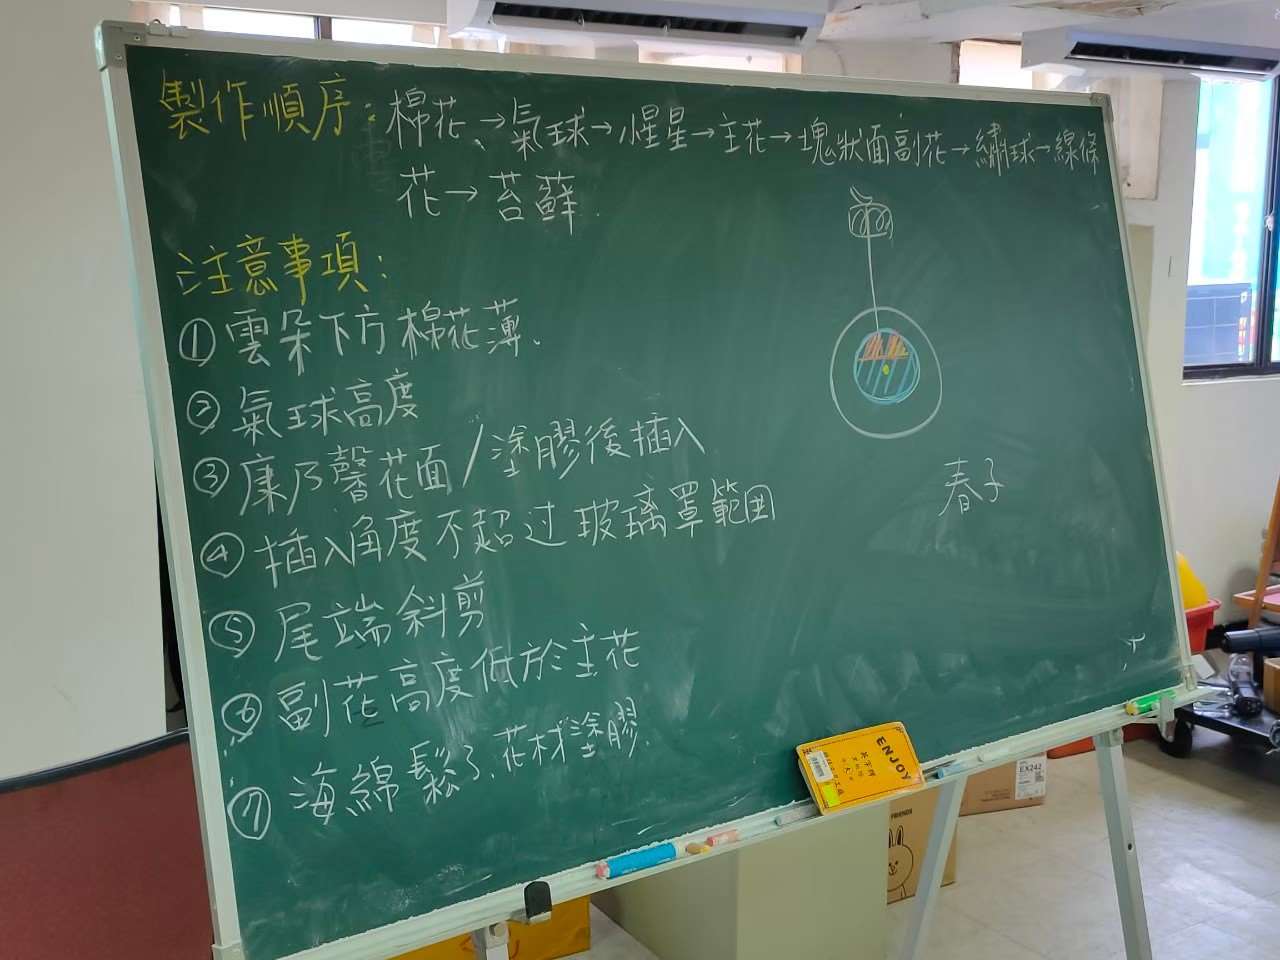 製作順序：棉花→氣球→小星星→主花→塊狀面副花→繡球→線條
花→苔蘚
注意事項：
①雲朵下方棉花薄、
②氣球高度
③康乃馨花面/塗膠後插入
④插入角度不超过玻璃罩範囲
⑤尾端斜剪
⑥副花高度低於主花
⑦海綿鬆了、花材塗膠
春子
ENJOY
EX242
FRIENDS